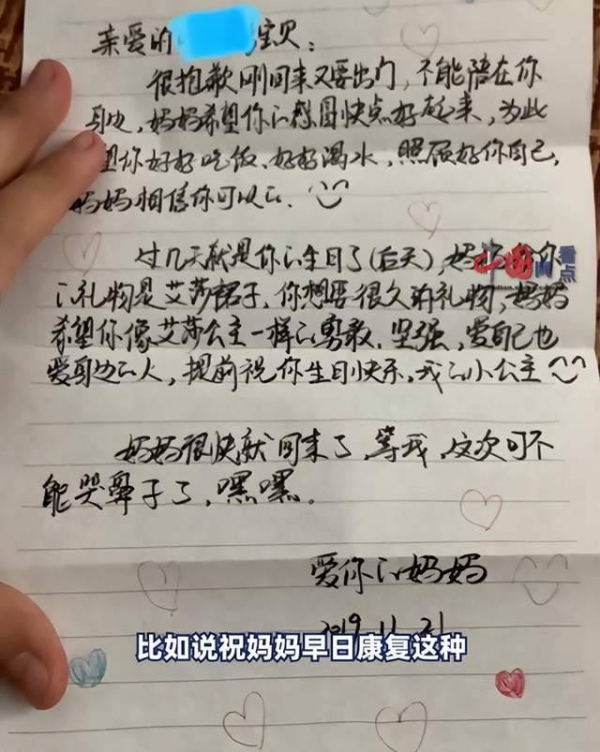 亲爱的 宝贝:
很抱歉刚回来又要出门,不能陪在你
身边,妈妈希望你的感冒快点好起来,为此
望你好好吃饭、好好喝水,照顾好你自己,
妈妈相信你可以的.
过几天就是你的生日了(后天),妈妈 你
的礼物是艾莎裙子,你想要很久的礼物,妈妈
希望你像艾莎公主一样的勇敢、坚强,爱自己也
爱身边的人,提前祝你生日快乐,我的小公主
中国网
看点
妈妈很快就回来了,等我,这次可不
能哭鼻子了,嘿嘿.
爱你的妈妈
2019.11.21
比如说祝妈妈早日康复这种